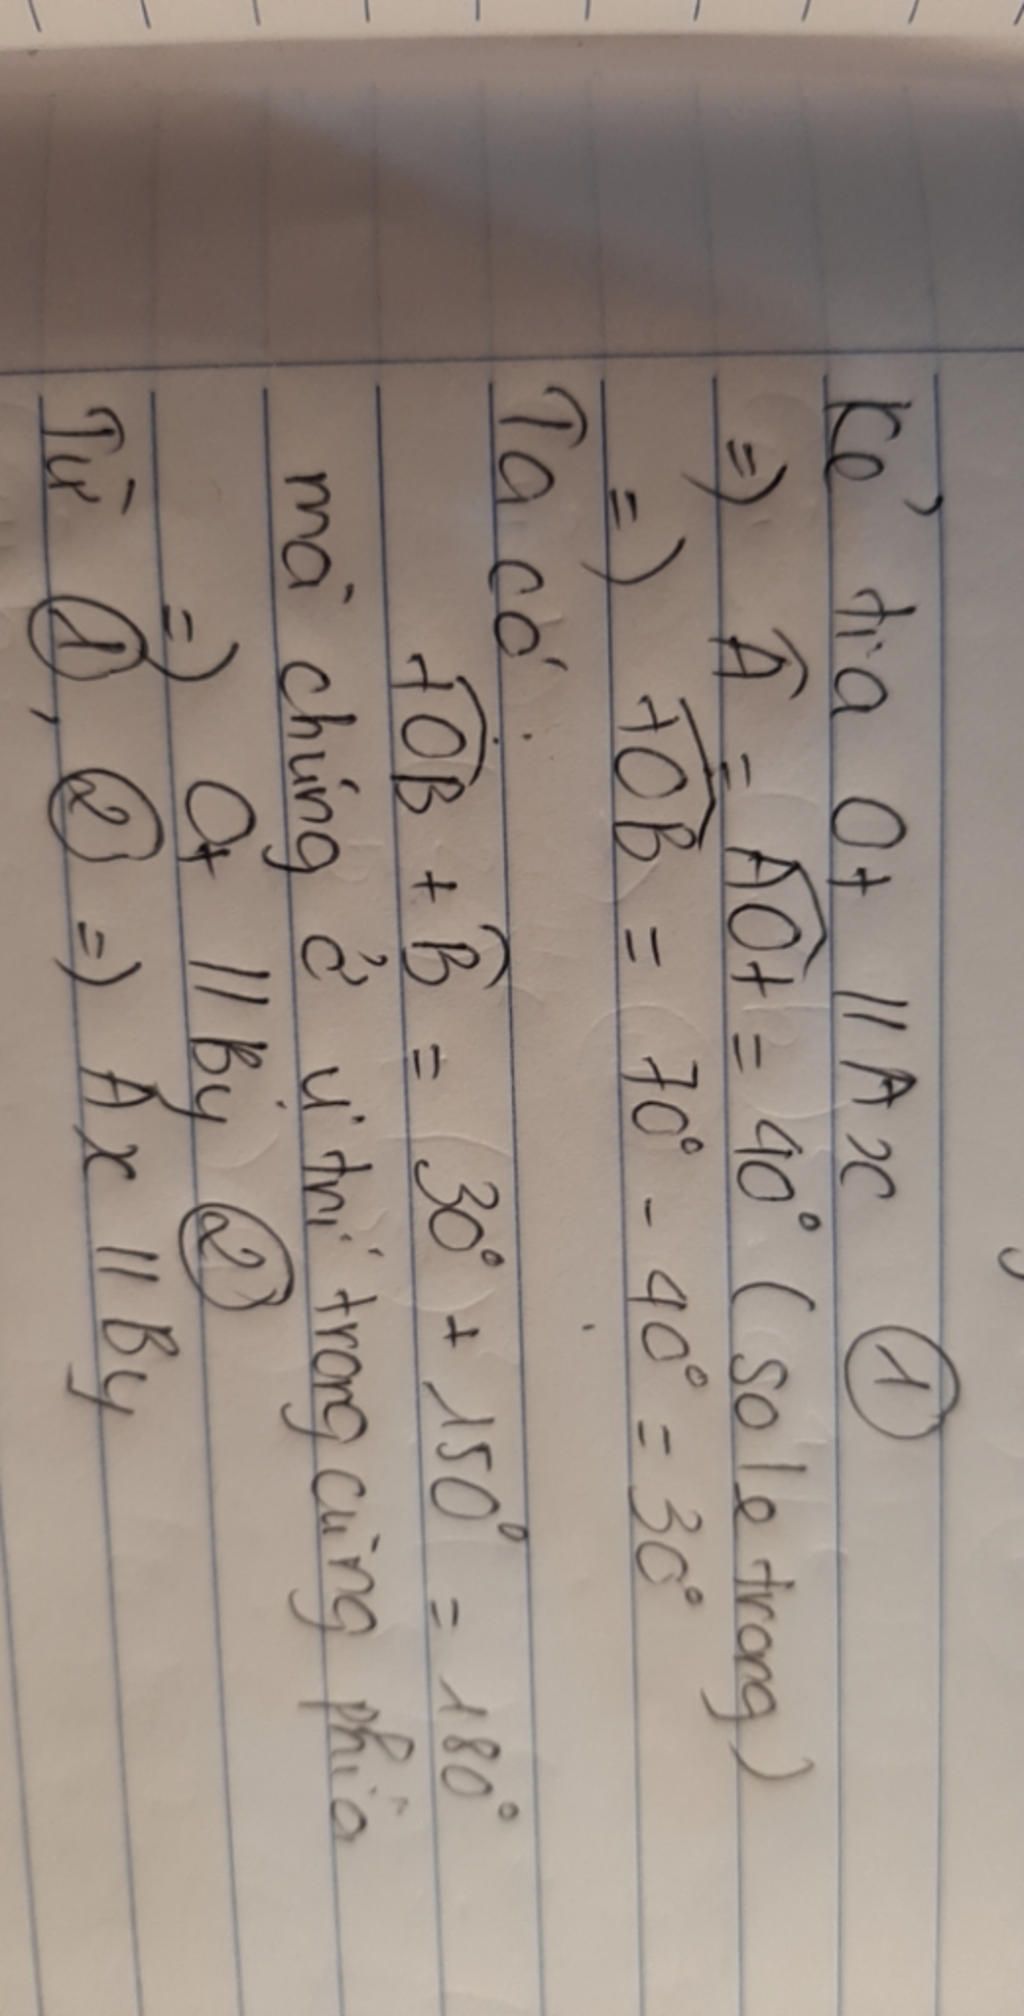 Kẻ tia Ot // Ax ①
=) Â = AÔt = 40° (so le trong)
=) tÔB = 70° - 40° = 30°
Ta có:
tÔB + B̂ = 30° + 150° = 180°
mà chúng ở vị trí trong cùng phía
=) Ot // By ②
Từ ①, ② =) Ax // By